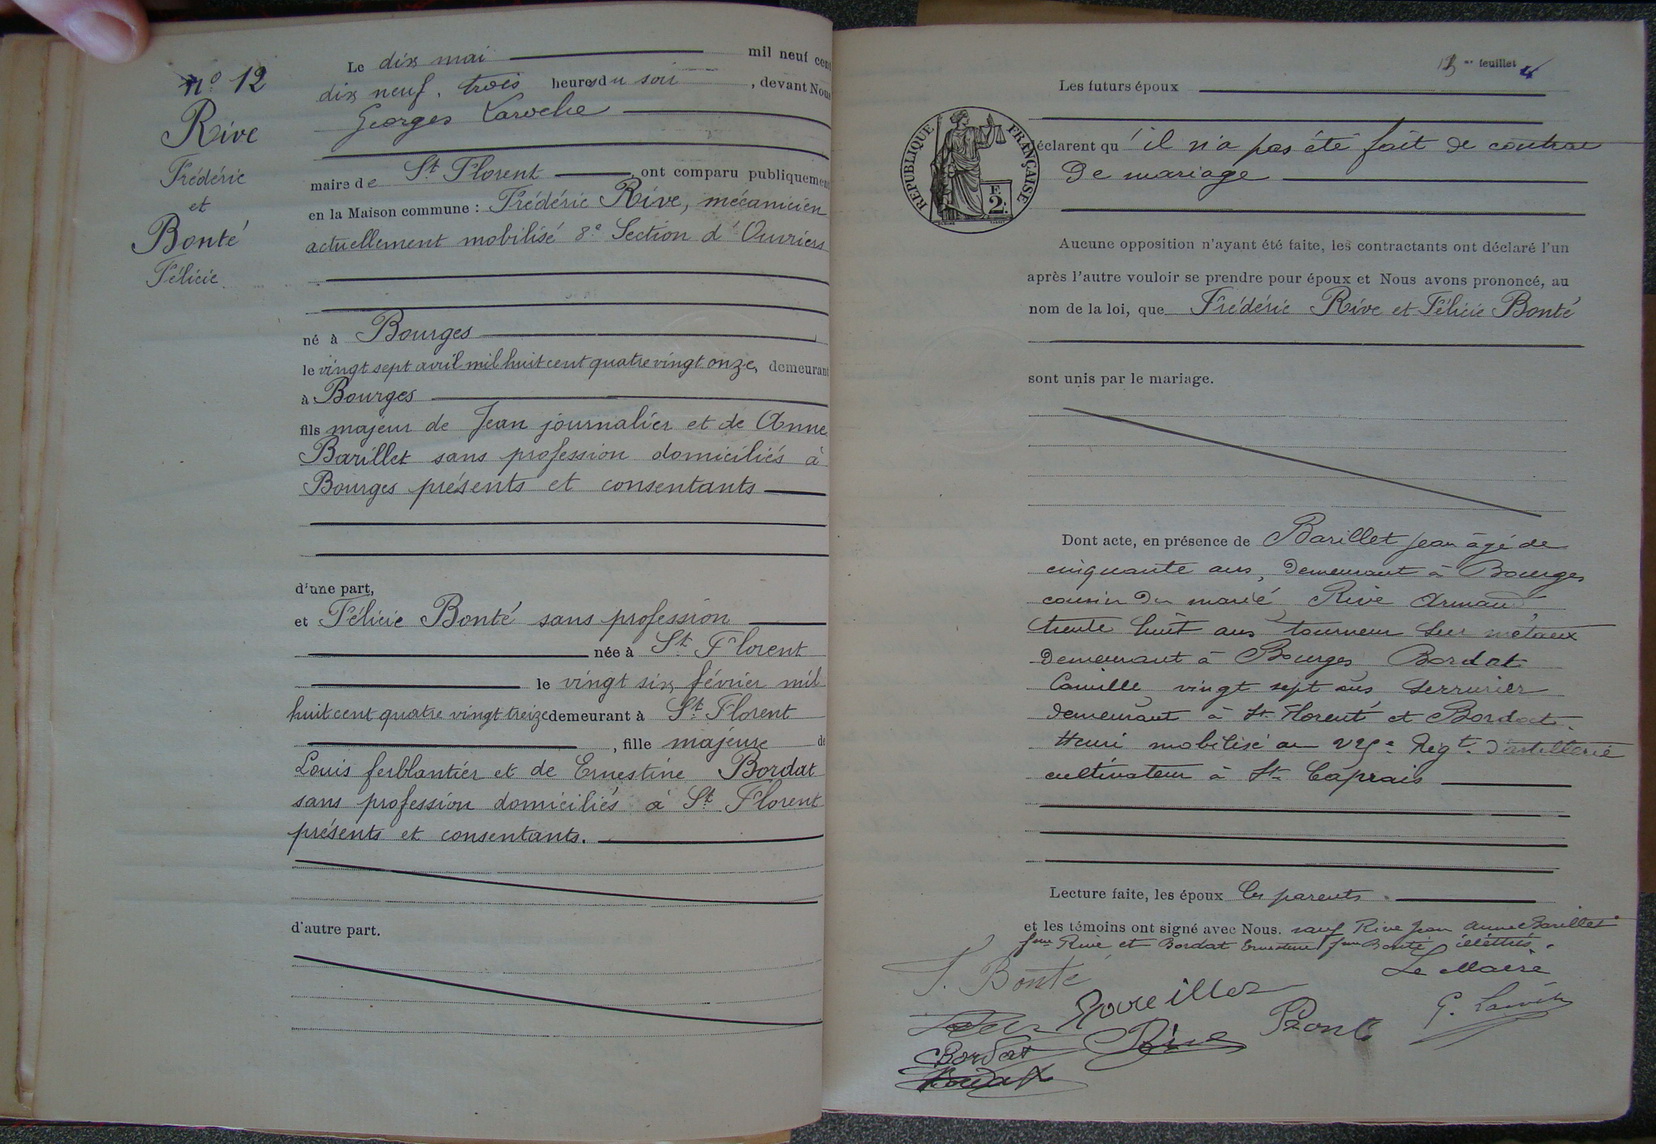 n° 12
Rive
Frédéric
et
Bonté
Félicie
Le dix mai mil neuf cent
dix neuf, trois heures du soir, devant Nous
Georges Laroche
maire de St Florent, ont comparu publiquement
en la Maison commune : Frédéric Rive, mécanicien
actuellement mobilisé 8e Section d'Ouvriers
né à Bourges
le vingt sept avril mil huit cent quatre vingt onze, demeurant
à Bourges
fils majeur de Jean journalier et de Anne
Barillet sans profession domiciliés à
Bourges présents et consentants
d'une part,
et Félicie Bonté sans profession
née à St Florent
le vingt six février mil
huit cent quatre vingt treize demeurant à St Florent
, fille majeure de
Louis ferblantier et de Ernestine Bordat
sans profession domiciliés à St Florent
présents et consentants.
d'autre part.
feuillet
Les futurs époux
RÉPUBLIQUE FRANÇAISE
F.
2.
déclarent qu'il n'a pas été fait de contrat
de mariage
Aucune opposition n'ayant été faite, les contractants ont déclaré l'un
après l'autre vouloir se prendre pour époux et Nous avons prononcé, au
nom de la loi, que Frédéric Rive et Félicie Bonté
sont unis par le mariage.
Dont acte, en présence de Barillet Jean âgé de
cinquante ans, demeurant à Bourges
cousin du marié, Rive Armand,
trente huit ans tourneur sur métaux
demeurant à Bourges Bordat
Camille vingt sept ans serrurier
demeurant à St Florent et Bordat
Henri mobilisé au Regt. d'artillerie
cultivateur à St Caprais
Lecture faite, les époux les parents
et les témoins ont signé avec Nous. sauf Rive Jean Anne Barillet
fme Rive et Bordat Ernestine fme Bonté illettrés.
Le Maire
F. Bonté
Rive
Bonté
Bordat
Bordat